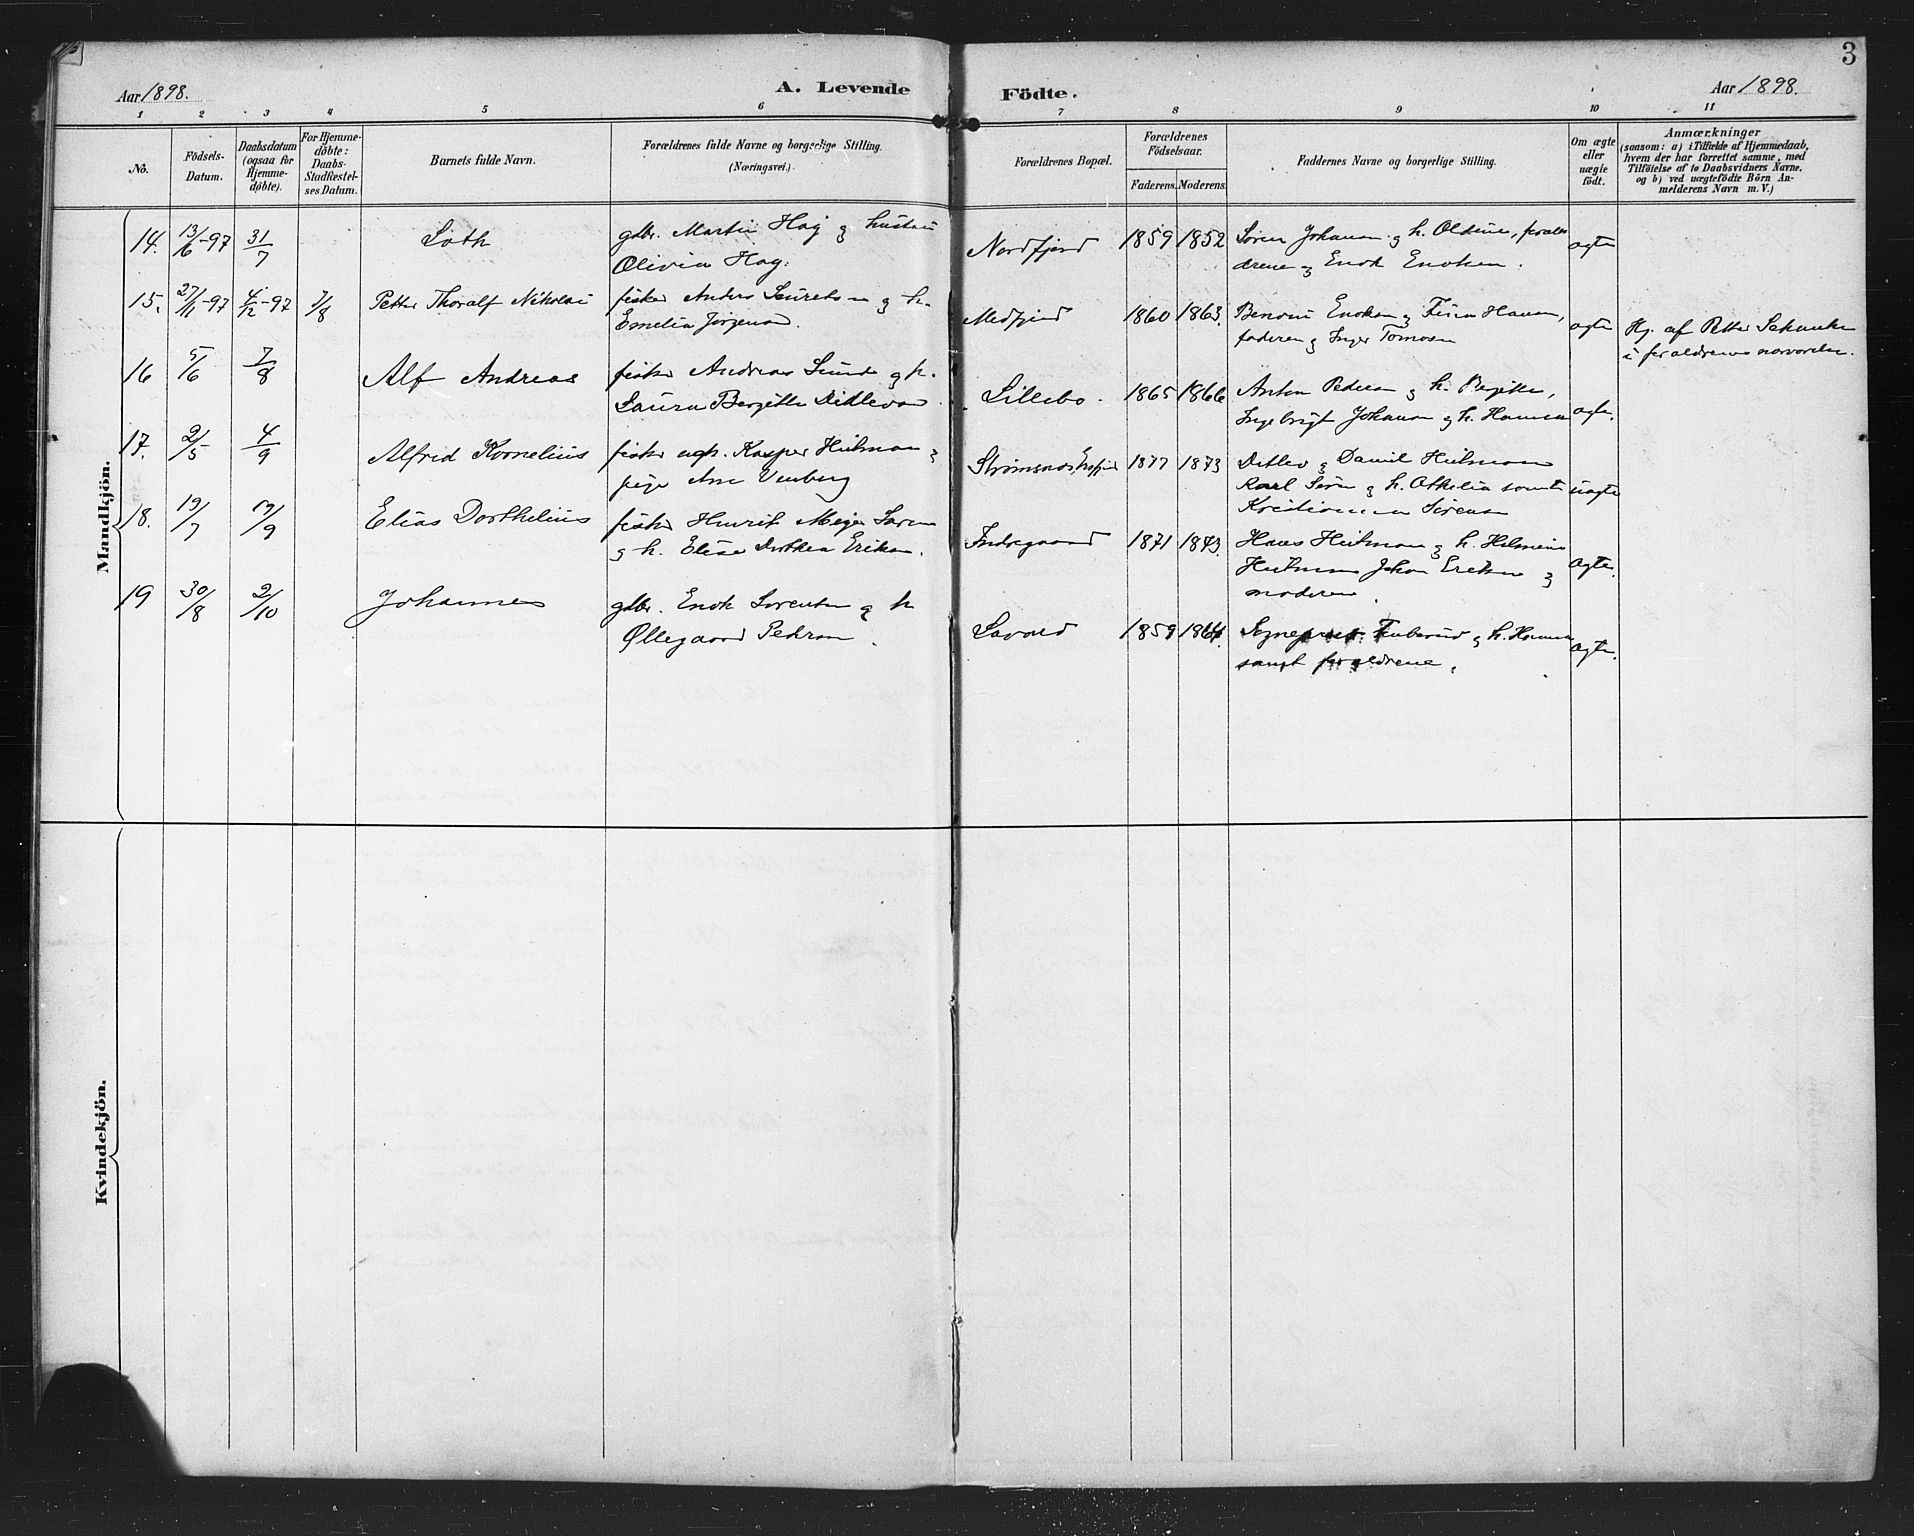 3
Aar 1898.
A. Levende Födte.
Aar 1898.
1 2 3 4 5 6 7 8 9 10 11
No.
Födsels-
Datum.
Daabsdatum
(ogsaa for
Hjemme-
døbte).
For Hjemme-
døbte:
Daabs-
Stadfæstel-
ses Datum.
Barnets fulde Navn.
Forældrenes fulde Navne og borgerlige Stilling.
(Næringsvei.)
Forældrenes Bopæl.
Forældrenes
Födselsaar.
Faderens. Moderens.
Faddernes Navne og borgerlige Stilling.
Om ægte
eller
uægte
født.
Anmærkninger
(saasom: a) i Tilfælde af Hjemmedaab,
hvem der har forrettet samme, med
Tilföielse af to Daabsvidners Navne.
og b) ved uægtefödte Börn An-
melderens Navn m. V.)
Mandkjön.
14. 13/6-97 31/7 Loth
gdbr. Martin Hag og hustru
Olivia Hag.
Nordfjord 1859 1852
Søren Johansen og h. Oldine, foræl
drene og Enok Enoksen.
ægte
15. 27/11-97 4/12-97 7/8 Petter Thoralf Nikolai
fisker Anders Lauretsen og h.
Emelia Jørgensen.
Medfjord 1860 1863.
Benoni Enoksen og Hansen,
faderen og Inger
ægte
Hj. af Petter Schanke
i forældrenes nærværelse.
16 5/6 7/8 Alf Andreas
fisker Andreas Lund og h.
Laura Bergitte Ditlevsen
Lillebo. 1865 1866
Anton Pedersen og h. Bergitte,
Ingebrigt Johansen og h. Hansen
ægte.
17. 2/5 4/9 Alfrid Kornelius
fisker ugk. Kasper Heitman og
pige Ane
Strømsnes, 1877 1873
Detlev og Daniel Heitman
Karl Sørn og h. Othelia samt
Kristianna Sørensen
uægte
18. 19/7 19/9 Elias Dorthelius
fisker Henrik Meyer Sørensen
og h. Elise Dorthea Eriksen.
Indregaard 1871 1843
Hans Heitman og h.
Heitman Johan Eriksen og
moderen.
ægte.
19 30/8 2/10 Johannes
gdbr. Enok Sørensen og h
Øllegaard Pedersen.
Lavold 1859 1864.
Sogneprest og h. Hanna
samt forældrene.
ægte.
Kvindekjön.